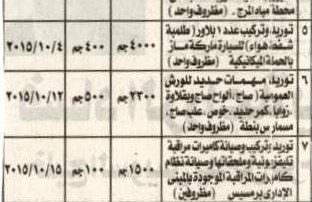 محطة مياه المرج. (مظروف واحد)
٥ توريد، وتركيب عدد ١ بلاور (طلمبة ٤٠٠٠ جم ٤٠٠ جم ٢٠١٥/١٠/٤
شفط هواء) للسيارة ماركة ماز
بالحملة الميكانيكية (مظروف واحد)
٦ توريد، مهمات حديد للورش ٢٣٠٠ جم ٥٠٠ جم ٢٠١٥/١٠/١٢
العمومية (صاج. ألواح صاج وبقلاوة
. زوايا. كمر حديد. خوص. علب صاج.
مسمار س بنطة (مظروف واحد)
٧ توريد، وتركيب وصيانة كاميرات مراقبة ١٥٠٠ جم ١٠٠ جم ٢٠١٥/١٠/١٥
تليفزيونية وملحقاتها وصيانة نظام
كاميرات المراقبة الموجودة بالمبنى
الإدارى برمسيس (مظروفين)